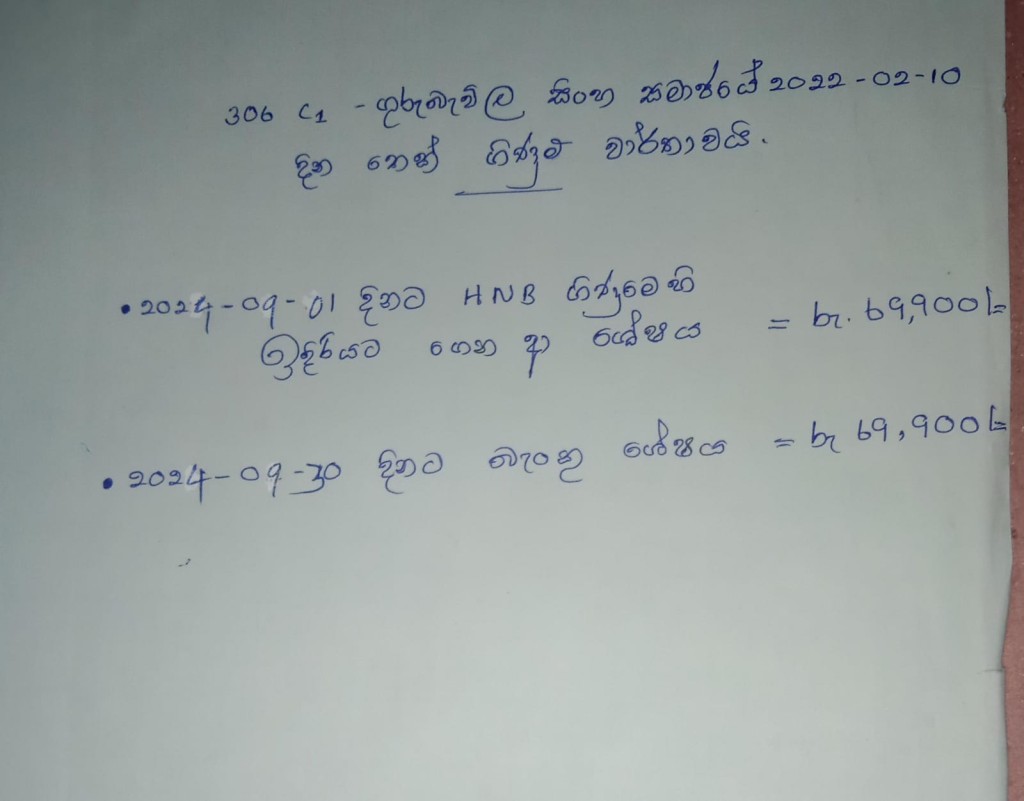 306 C1 - ගුරුබැවිල සිංහ සමාජයේ 2022-02-10
දින තෙක් ගිණුම් වාර්තාවයි.
• 2024-09-01 දිනට HNB ගිණුමෙහි
ඉදිරියට ගෙන ආ ශේෂය = රු. 69,900/=
• 2024-09-30 දිනට බැංකු ශේෂය = රු 69,900/=